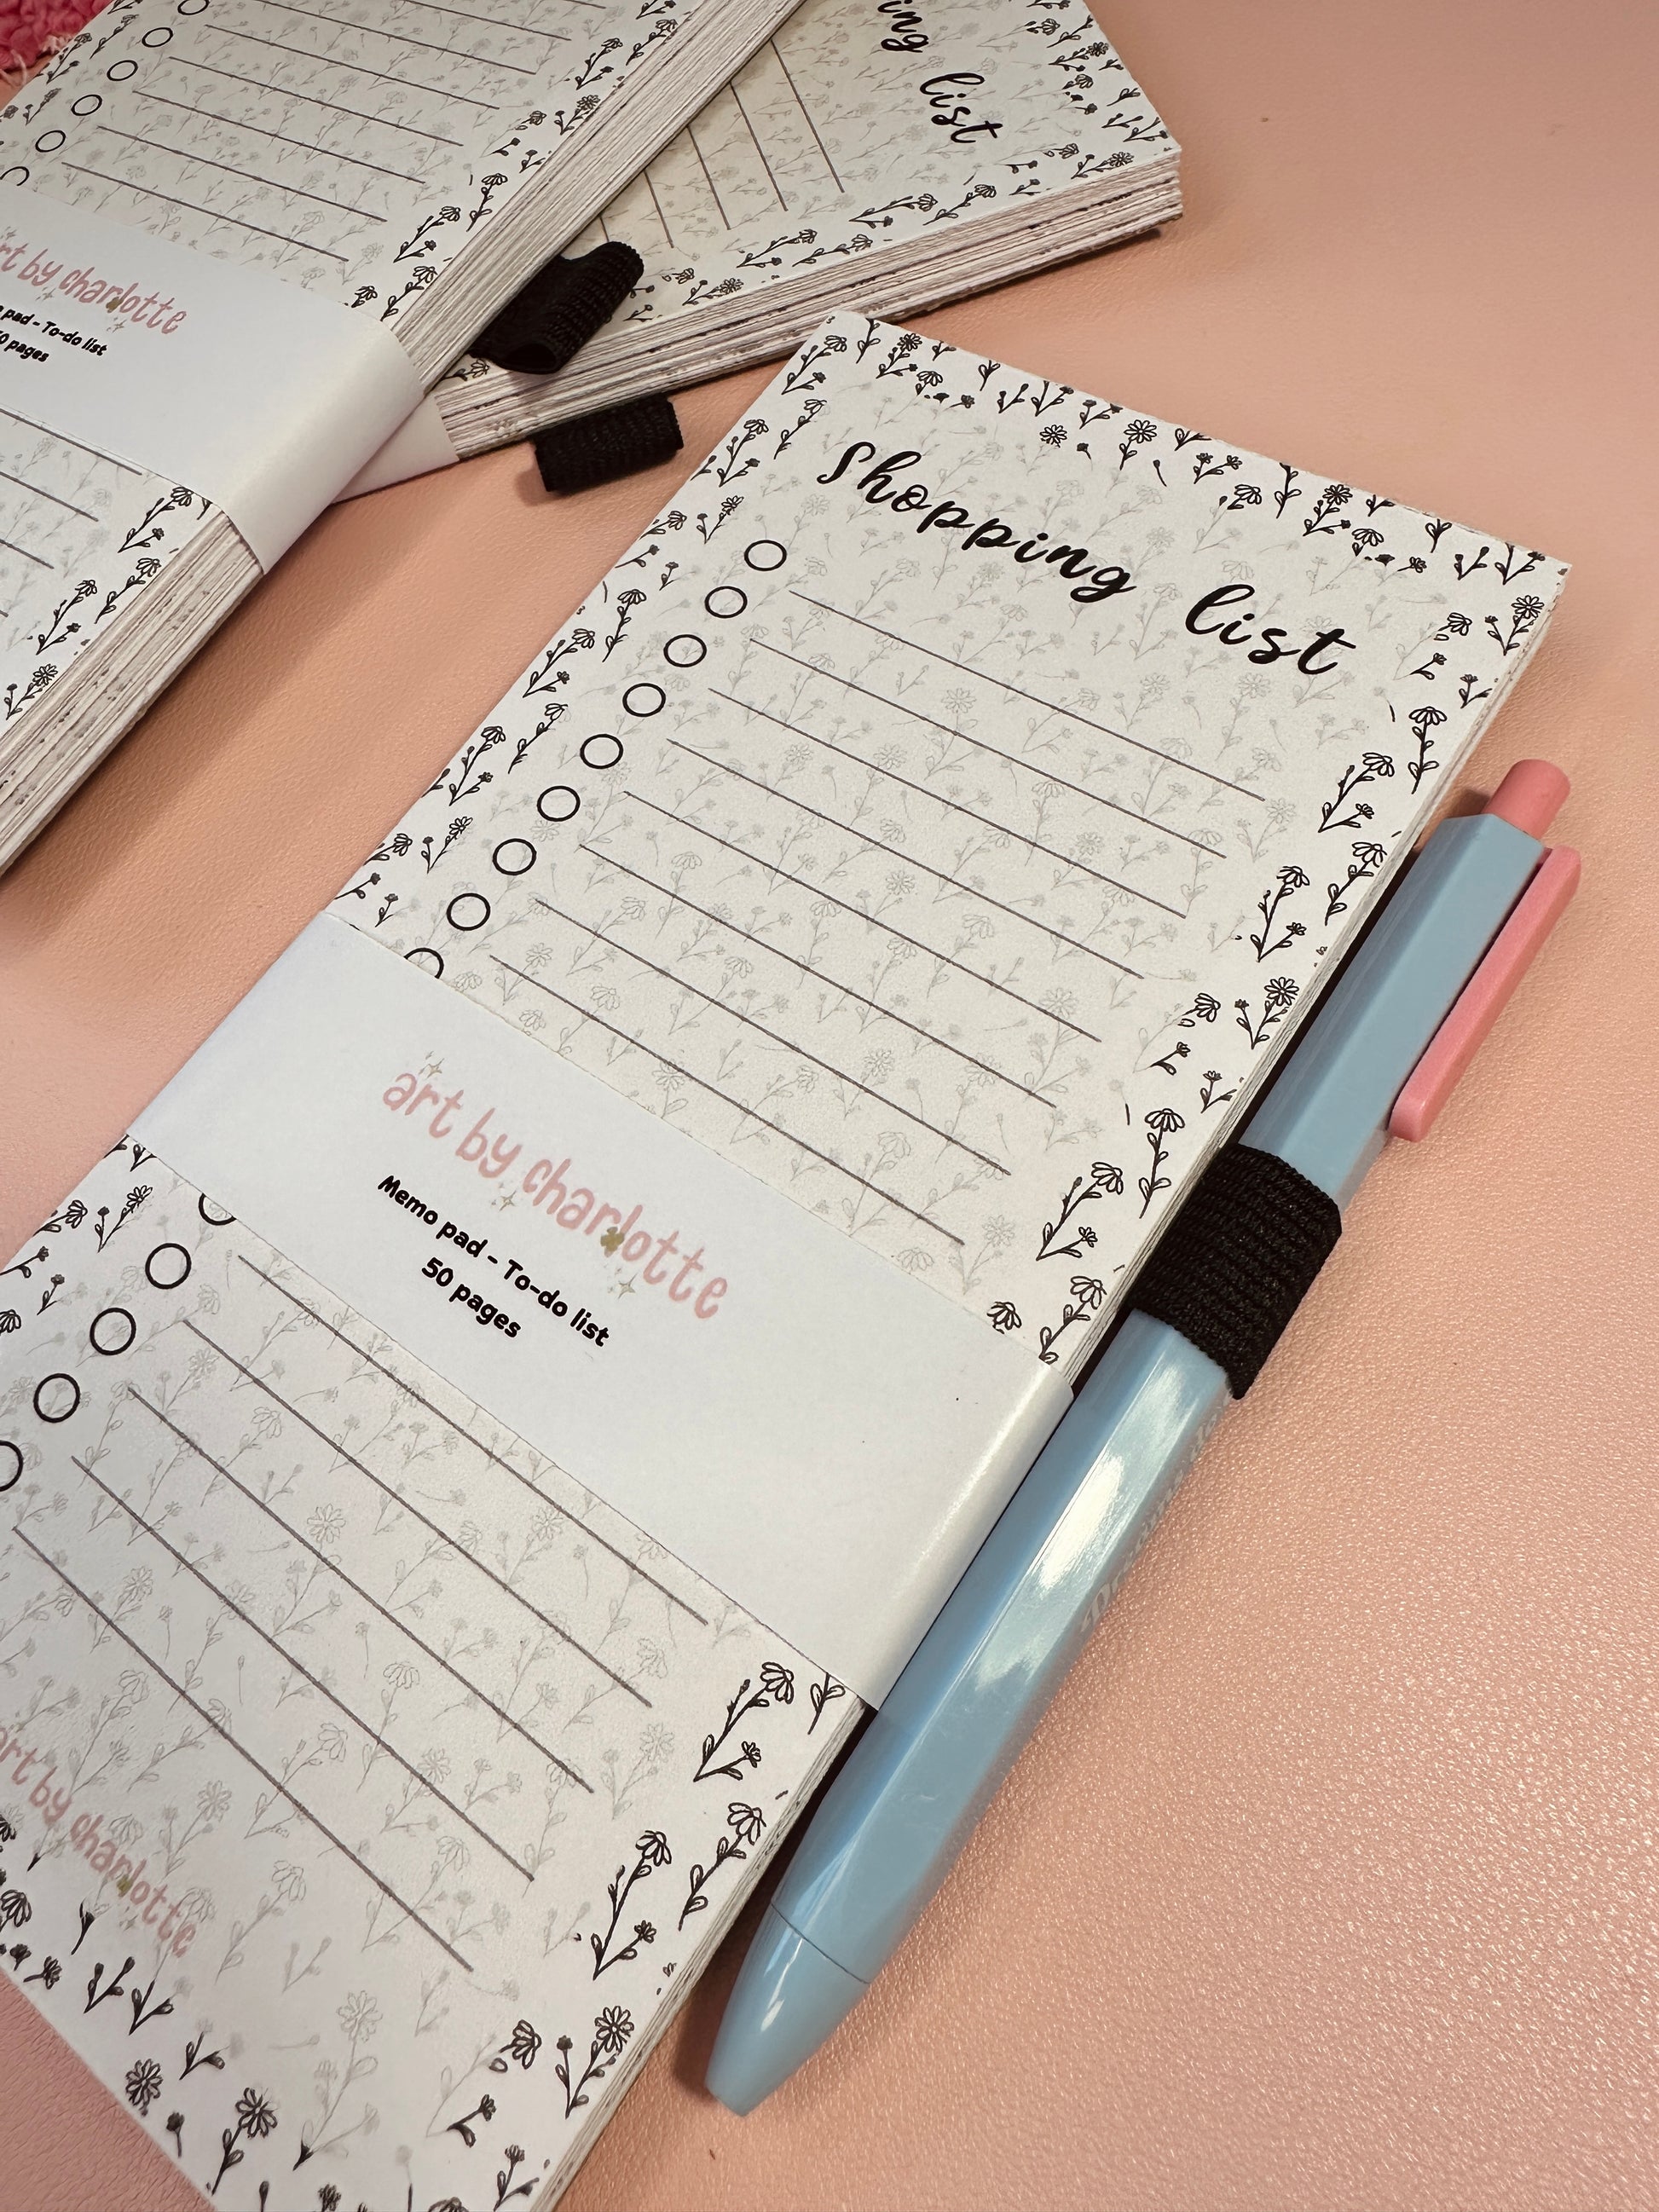 ing
list
art by charlotte
pad - To-do list
50 pages
Shopping list
art by charlotte
Memo pad - To-do list
50 pages
art by charlotte